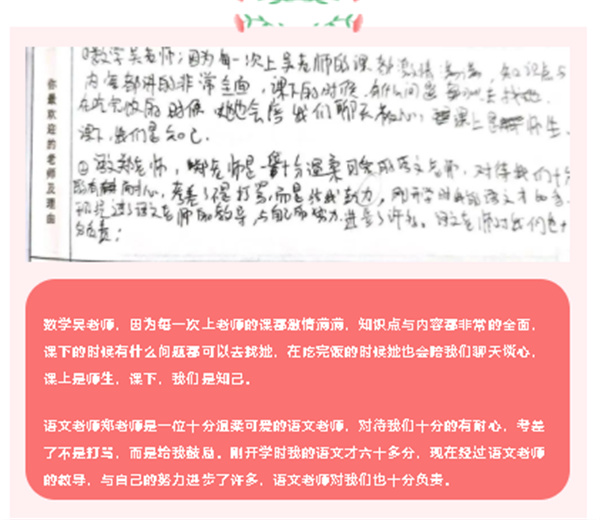 你最欢迎的老师及理由
①数学吴老师；因为每一次上吴老师的课都激情满满，知识点与
内容都讲的非常全面，课下的时候，有什么问题都可以去找她。
在吃完饭的时候她也会陪我们聊天谈心，课上是师生，
课下，我们是知己。
老师，老师是一十分温柔可爱的语文老师，对待我们十分
的有耐心，考差了不是打骂，而是给我鼓力，刚开学时我的语文才六十多，
现在经过语文老师的教导，与自己的努力进步了许多。语文老师对我们也十
分负责；
数学吴老师，因为每一次上老师的课都激情满满，知识点与内容都非常的全面，
课下的时候有什么问题都可以去找她，在吃完饭的时候她也会陪我们聊天谈心，
课上是师生，课下，我们是知己。
语文老师郑老师是一位十分温柔可爱的语文老师，对待我们十分的有耐心，考差
了不是打骂，而是给我鼓励。刚开学时我的语文才六十多分，现在经过语文老师
的教导，与自己的努力进步了许多，语文老师对我们也十分负责。